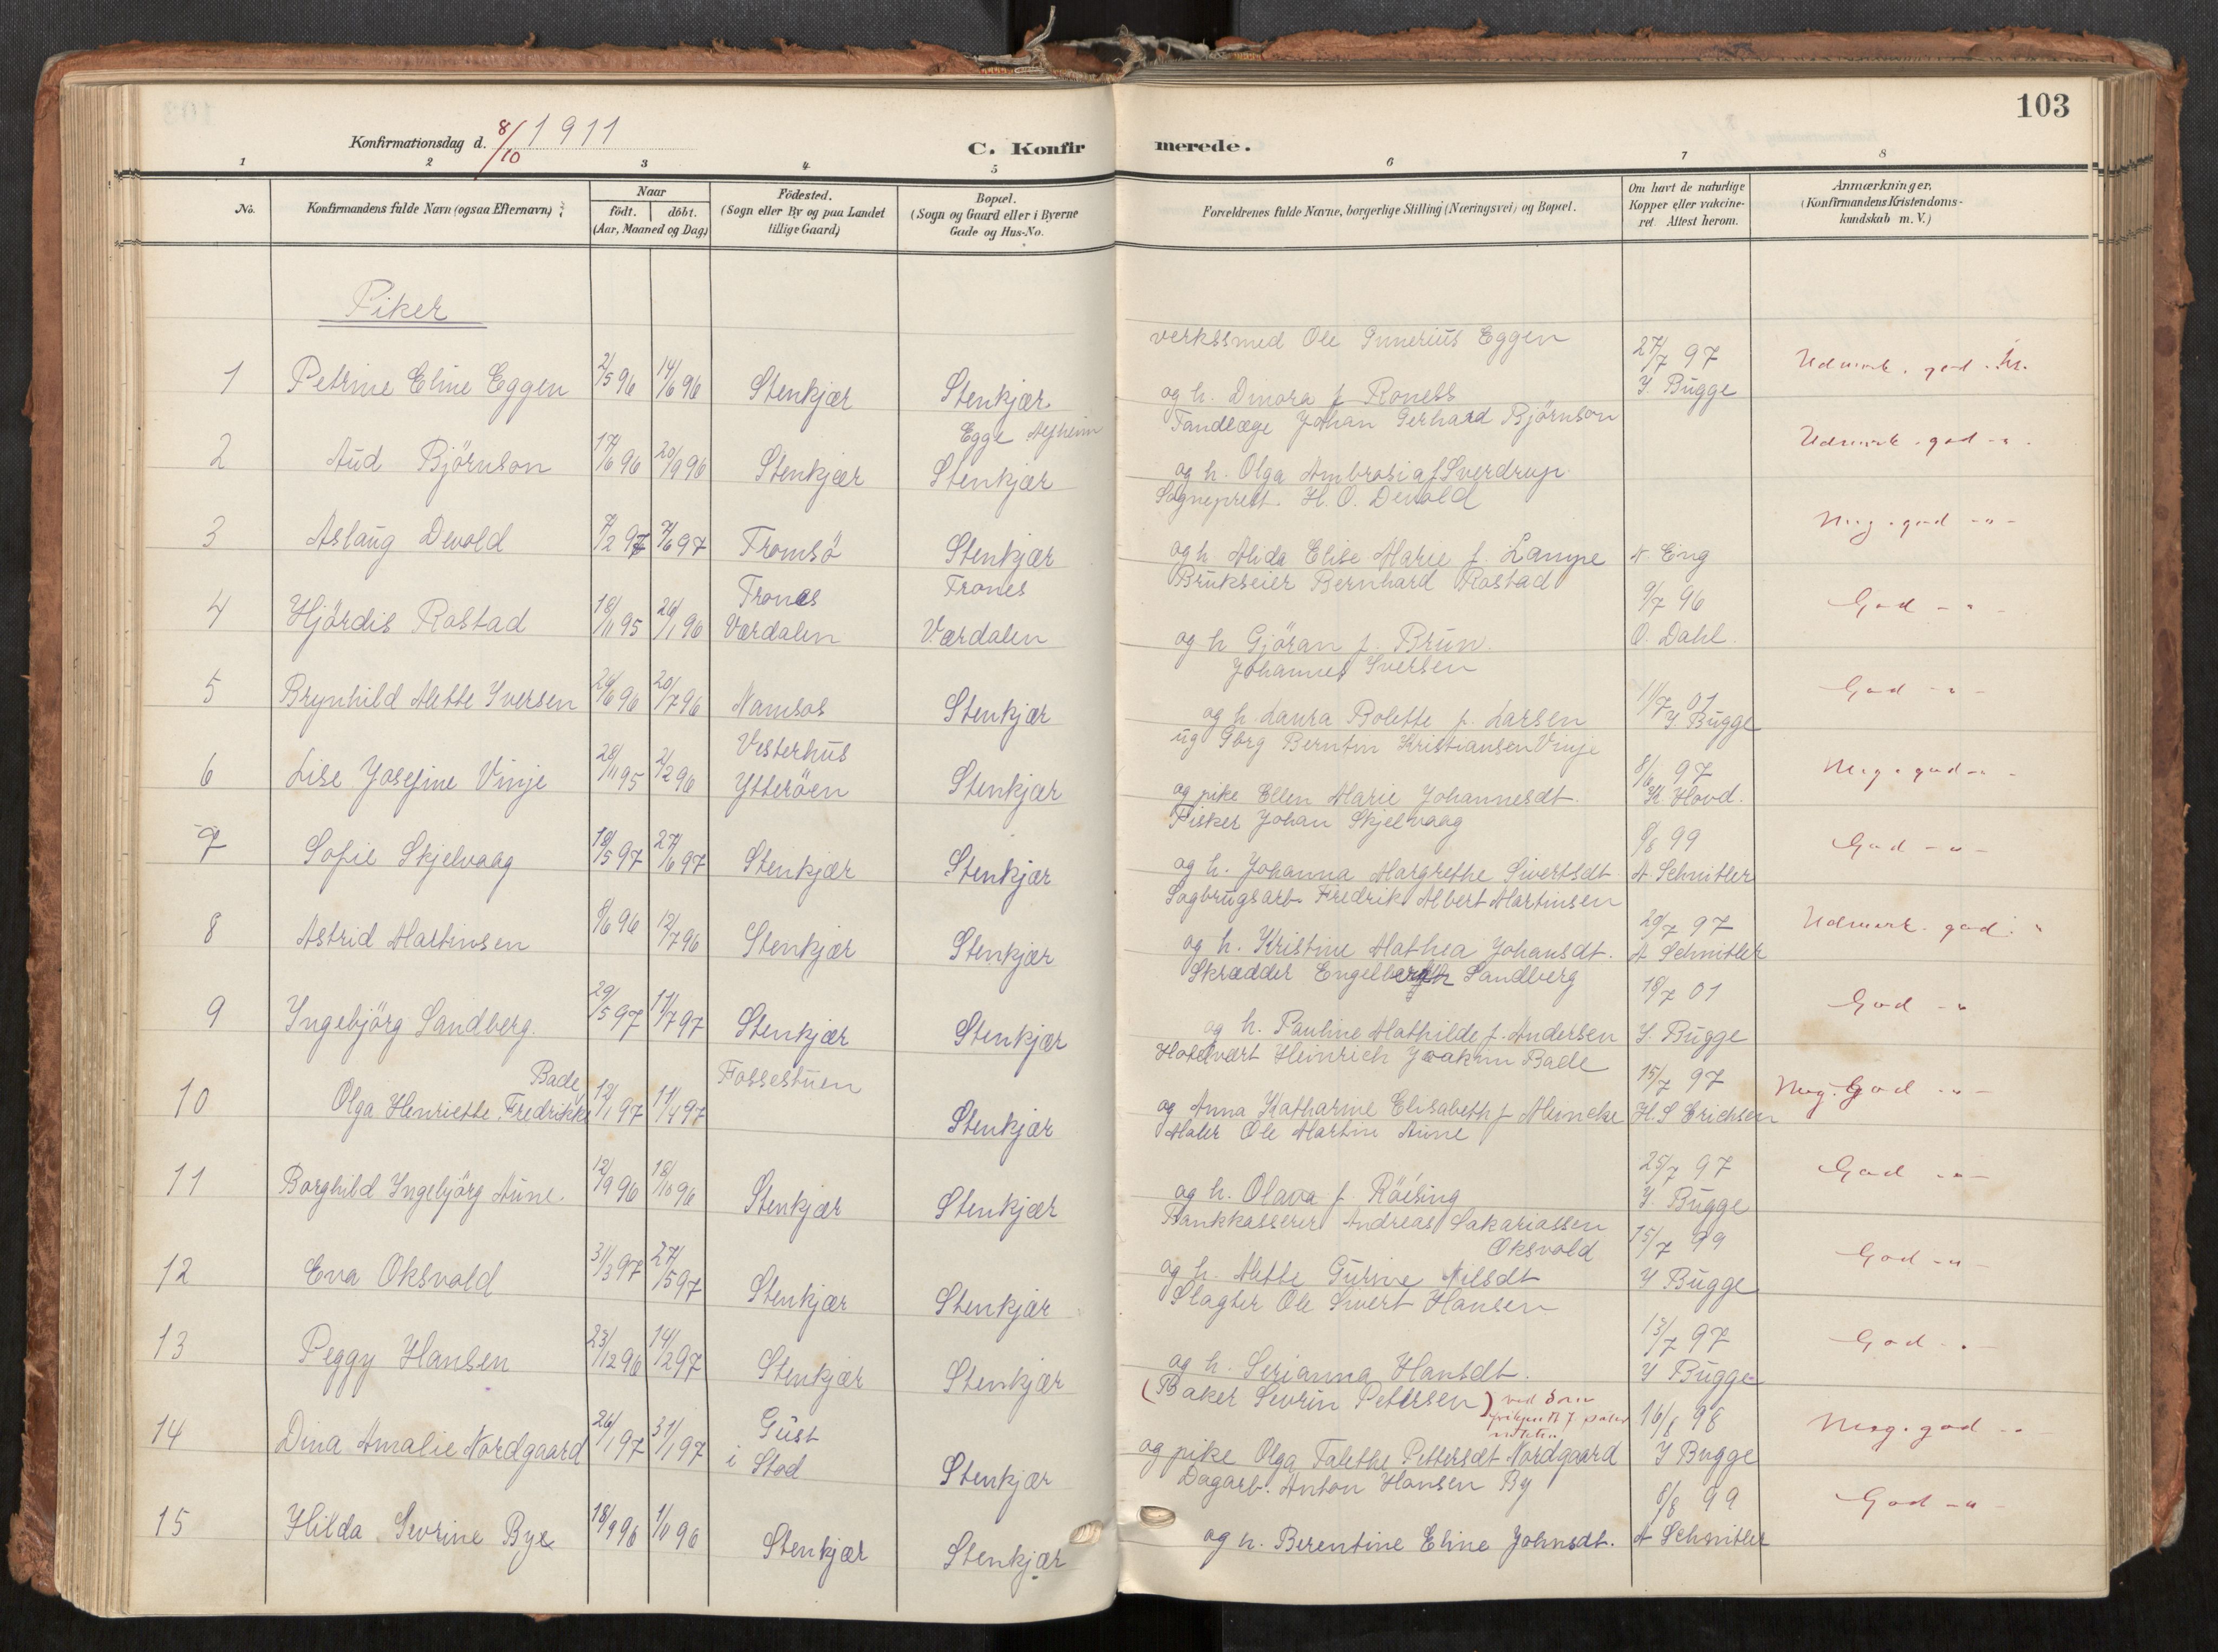 103
Konfirmationsdag d. 8/10 1911
C. Konfirmerede.
1 2 3 4 5 6 7 8
No.
Konfirmandens fulde Navn (ogsaa Efternavn)
Naar
födt. döbt.
(Aar, Maaned og Dag)
Födested.
(Sogn eller By og paa Landet
tillige Gaard)
Bopæl.
(Sogn og Gaard eller i Byerne
Gade og Hus-No.
Forældrenes fulde Navne, borgerlige Stilling (Næringsvei) og Bopæl.
Om havt de naturlige
Kopper eller vakcine-
ret. Attest herom.
Anmærkninger.
(Konfirmandens Kristendoms-
kundskab m. V.)
Piker
verkssmed Ole Eggen
1 Petrine Eline Eggen 2/5 96 14/6 96 Stenkjær Stenkjær og h. Dinora f. Roness 27/7 97 Y. Bugge Udmerk. god
Egge Alfheim Tandlæge Johan Gerhard Björnson
2 Aud Björnson 17/6 96 20/9 96 Stenkjær Stenkjær og h. Olga Ambrosia f Sverdrup. Udmerk. god -"-
Sogneprest. H. O. Devold
3 Aslaug Devold 7/2 97 7/6 97 Tromsö Stenkjær og h. Alida Elise Marie f. Lampe N. Eng Meg. god -"-
Trones Trones Brukseier Bernhard Rostad
4 Hjördis Rostad 18/11 95 26/1 96 Værdalen Værdalen og h Gjöran f. Brun. 9/7 96 O. Dahl. God -"-
Johannes Iversen
5 Brynhild Alette Iversen 24/6 96 20/7 96 Namsos Stenkjær og h. Laura Bolette f. Larsen 11/7 01 Y Bugge God -"-
Vesterhus ug Gbrg Berntin Kristiansen Vinje
6 Lise Josefine Vinje 28/11 95 2/2 96 Ytteröen Stenkjær og pike Ellen Marie Johannesdt. 8/6 97 K. Hovd. Meg. god -"-
Fisker Johan Skjelvaag
7 Sofie Skjelvaag 18/5 97 27/6 97 Stenkjær Stenkjær og h. Johanna Margrethe Sivertsdt. 8/8 99 A Schnitler God -"-
Sagbrugsarb. Fredrik Albert Martinsen
8 Astrid Martinsen 8/6 96 12/7 96 Stenkjær Stenkjær og h. Kristine Mathea Johansdt. 29/7 97 A Schnitler Udmerk. god. "
Skrædder Sandberg
9 Ingebjörg Sandberg. 29/5 97 11/7 97 Stenkjær Stenkjær og h. Pauline Mathilde f. Andersen 18/7 01 Y. Bugge God -"
Bade Fossestuen Hotelvært Heinrich Joakim Bade
10 Olga Henriette Fredrikke 12/1 97 11/4 97 Stenkjær og Anna Katharine Elisabeth f Meincke 15/7 97 H. S Erichsen Meg. God -"-
Maler Ole Martin Aune
11 Borghild Ingebjörg Aune. 12/9 96 18/10 96 Stenkjær Stenkjær og h. Olava f. Röising 25/7 97 Y. Bugge God -"-
Bankkasserer Andreas Sakariassen
Oksvold
12 Eva Oksvold 31/3 97 27/5 97 Stenkjær Stenkjær og h. Alette Gurine Nilsdt 15/7 99 Y Bugge God -"-
Slagter Ole Sivert Hansen
13 Peggy Hansen 23/12 96 14/2 97 Stenkjær Stenkjær og h. Serianna Hansdt. 13/7 97 Y Bugge God -"-
Gust (Baker Sevrin Petersen) ved dom
14 Dina Amalie Nordgaard 26/1 97 31/1 97 i Stod Stenkjær og pike Olga Talethe Pettersdt Nordgaard 16/8 98 Y Bugge Meg. god -"
Dagarb. Anton Hansen By
15 Hilda Sevrine Bye 18/9 96 1/11 96 Stenkjær Stenkjær og h. Berentine Eline Johnsdt. 8/8 99 A Schnitler God -"-